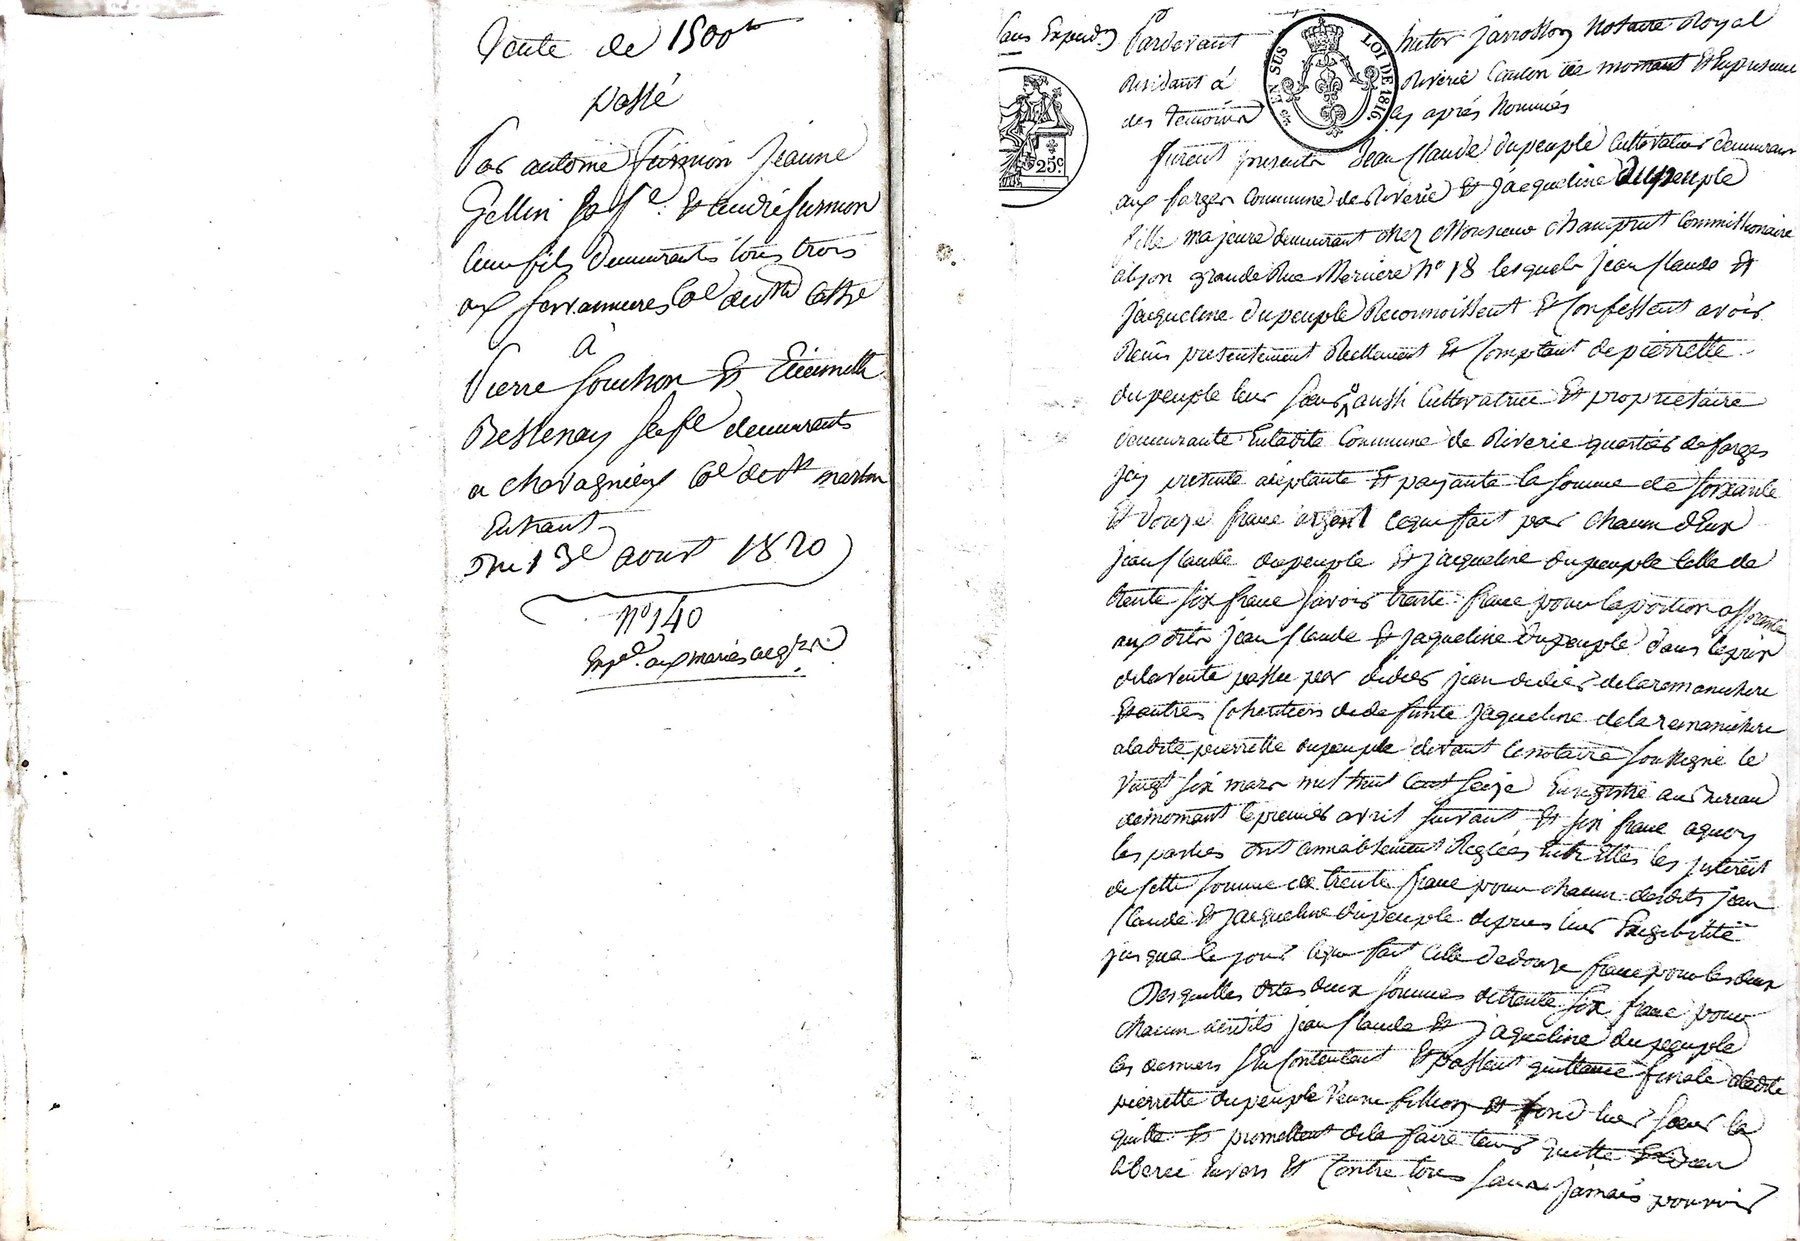 Vente de 1500 tt
passé
Par antoine furnion jeanne
Gellin sa fe. & andré furnion
leur fils demeurants tous trois
aux
à
Pierre souchon & Etiennette
Bessenay sa fe demeurants
a chavagnieux Cne de st martin
Du 13e aoust 1820
n° 140
Expéd. aux mariés acqrs
Sans Expedon
Pardevant hector jarrosson Notaire Royal
Residant à Riverie Canton de mornant & En presence
des temoins cy aprés Nommés
EN SUS LOI DE 1816
25c.
furent presents Jean Claude dupeuple Cultivateur demeurant
aux farges Commune de Riverie & jacqueline dupeuple
fille majeure demeurant chez Monsieur Commissionaire
alyon grande Rue Merciere N° 18 lesquels jean Claude &
jacqueline dupeuple Reconnoissent & Confessent avoir
Recus presentement Réellement & Comptant de pierrette
dupeuple leur sœur aussi Cultivatrice & proprietaire
demeurante Enladite Commune de Riverie quartier de farges
jcy presente acceptante & payante la somme de soixante
& douze franc argent cequi fait par chacun d'Eux
jean Claude dupeuple & jacqueline dupeuple Celle de
trente six franc savoir trente franc pour la portion afferante
aux dits jean Claude & jaqueline dupeuple dans le prix
dela vente passée par didier jean didier delaromanichere
& autres Cohéritiers de defunte jaqueline dela romanichere
aladite pierrette dupeuple devant le notaire soussigné le
Vingt six mars mil huit Cent seize Enregistré au Bureau
demornant le premier avril suivant & six franc aquoy
les parties ont amiablement Reglées Entr'Elles les jnterêt
de Cette somme de trente franc pour chacun desdits jean
Claude & jacqueline dupeuple depuis leur Exigibilité
jusqua ce jour cequi fait Celle dedouze franc pour les deux
Desquelles dites deux sommes de trente six franc pour
chacun desdits jean Claude & jaqueline dupeuple
les derniers s'En Contentent & passent quittance finale aladite
pierrette dupeuple Veuve fillion & leur sœur la
quitte & promettent dela faire tenir quitte
liberée Envers & Contre tous sans jamais pouvoir